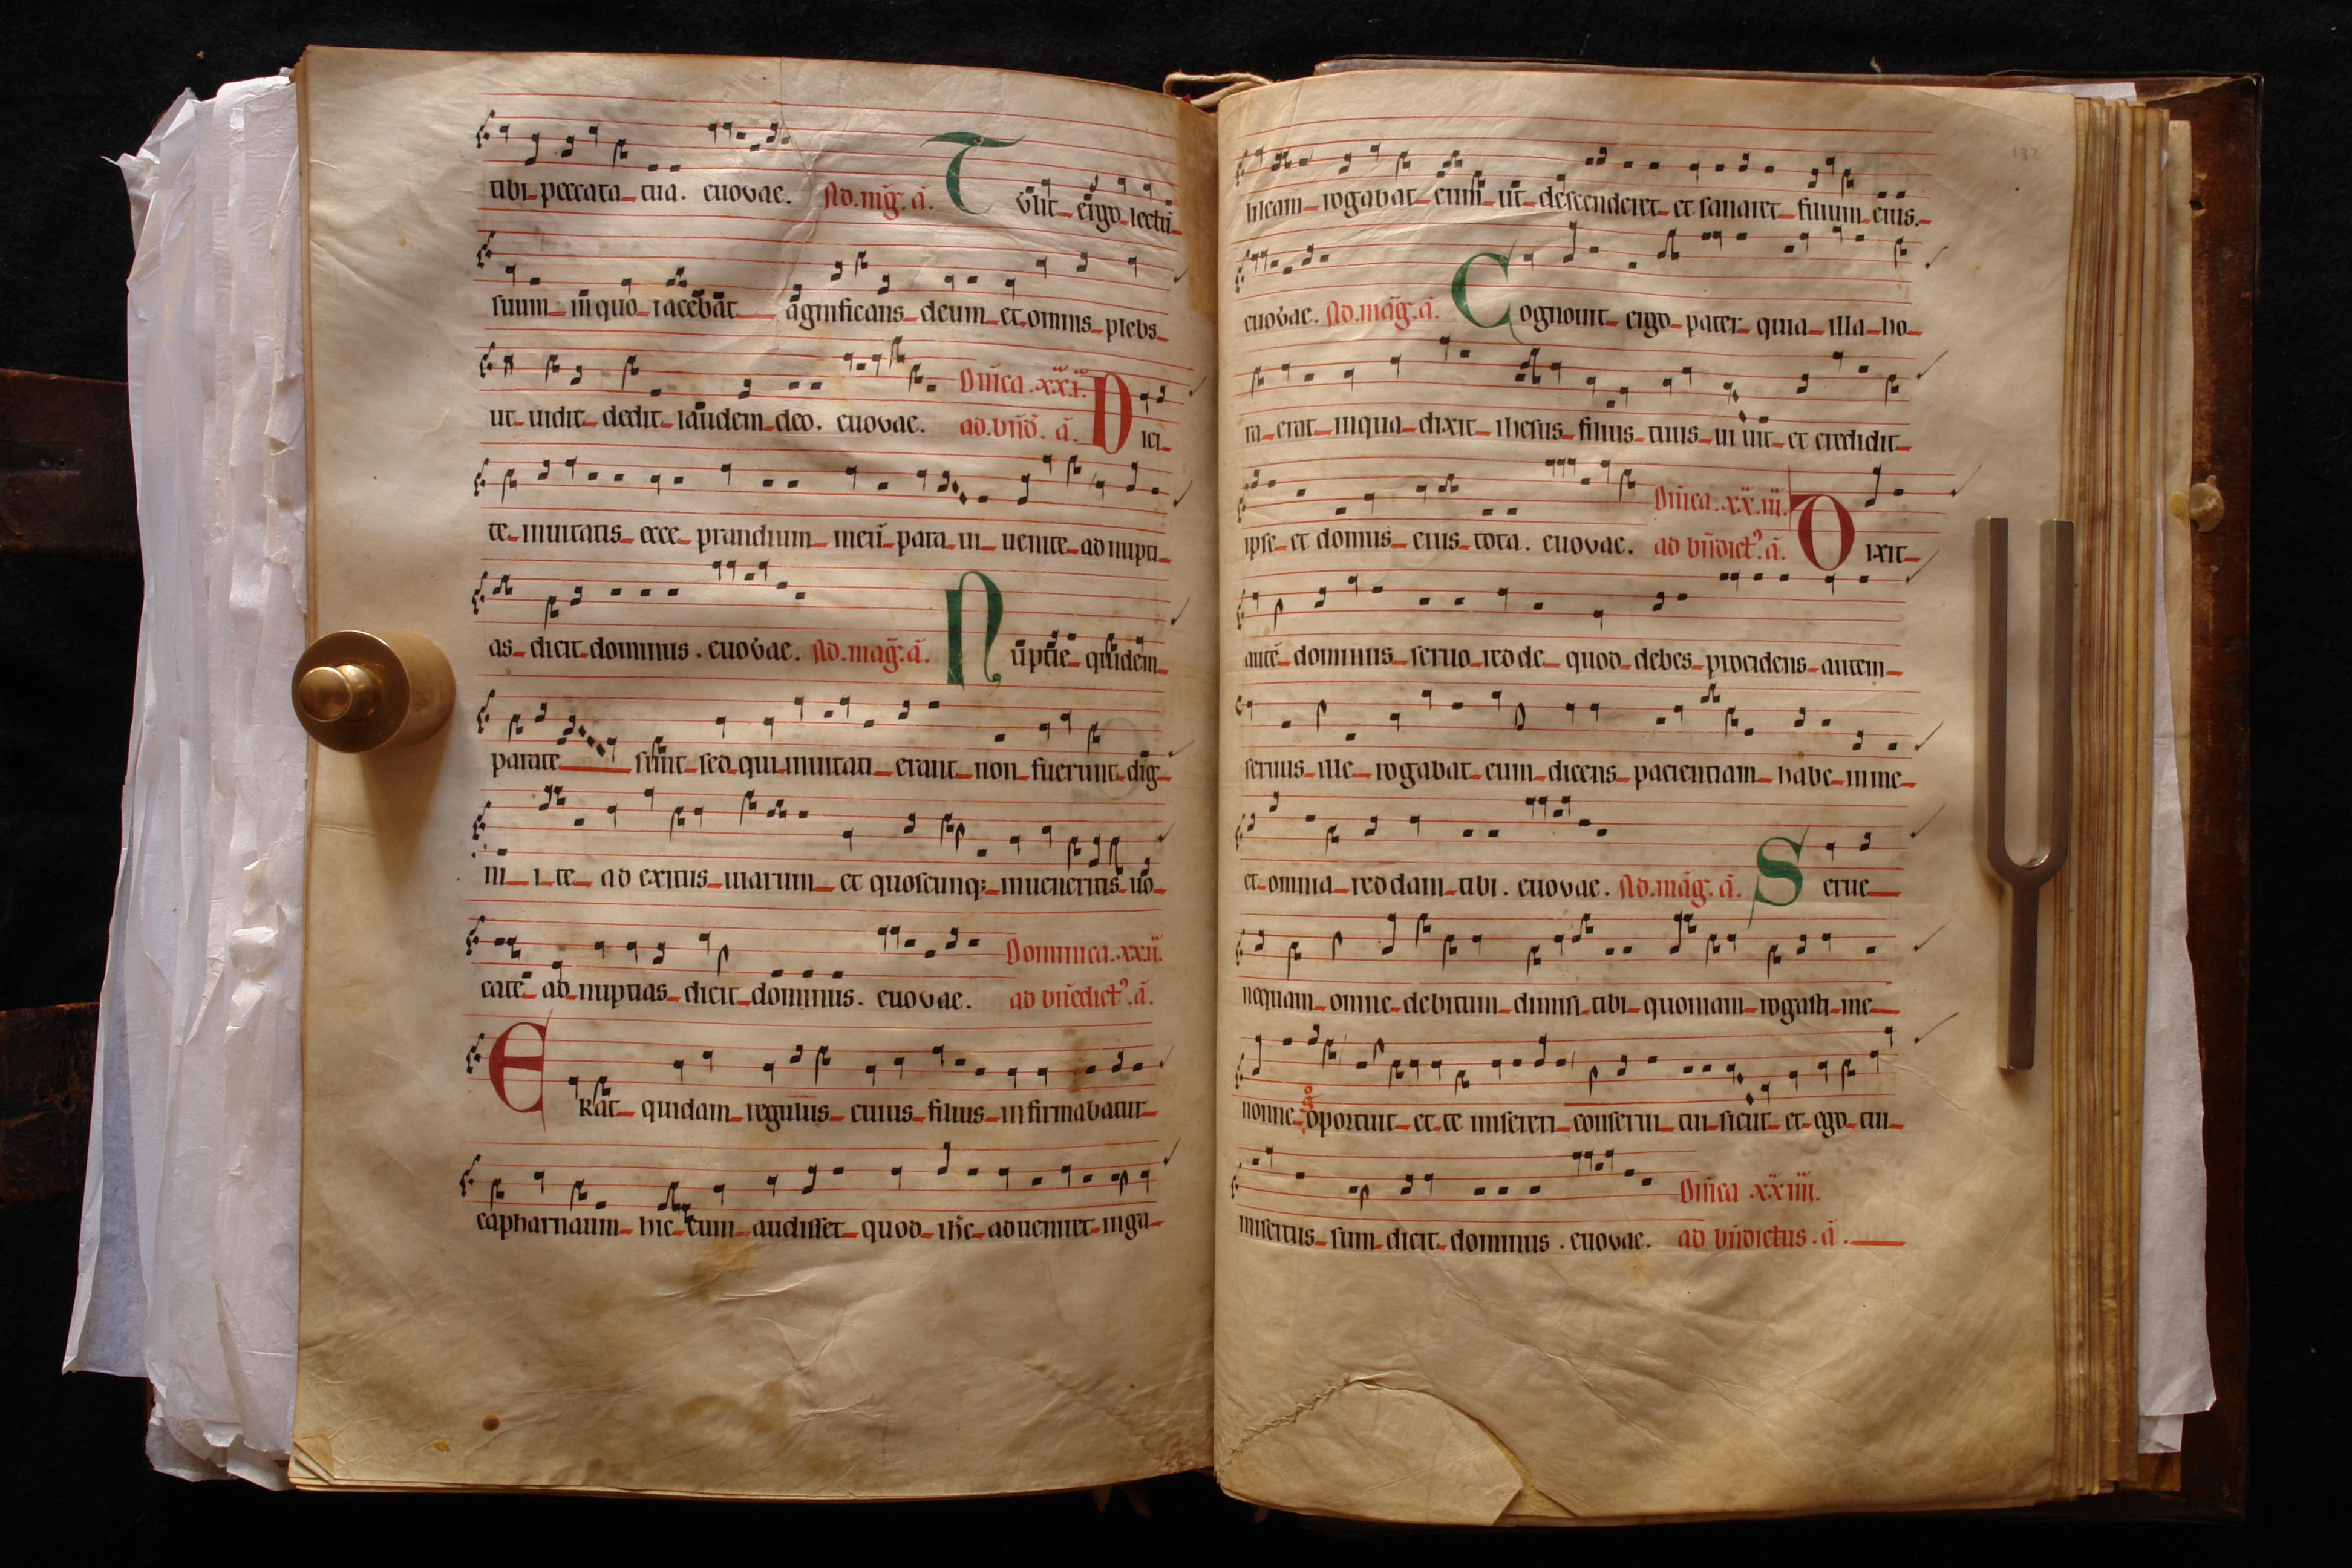 tibi peccata tua. euovae. Ad. mag̅. a̅. Tulit ergo lectu̅
suum in quo iacebat agnificans deum et omnis plebs
ut uidit dedit laudem deo. euovae. Dn̅ica .xx.i.
ad. bn̅d. a̅. Dici
te inuitatis ecce prandium meu̅ para ui uenite ad nupti
as dicit dominus. euovae. Ad. mag̅. a̅. Nuptie quidem
parate sunt sed qui inuitati erant non fuerunt dig
ni i te ad exitus uiarum et quoscunq; inueneritis uo
cate ad nuptias dicit dominus. euovae. Dominica .xx.ii.
ad bn̅edict9. a̅.
Erat quidam regulus cuius filius infirmabatur
capharnaum hic cum audisset quod ih̅c adueniret in ga
lileam rogabat eum ut descenderet et sanaret filium eius.
euovae. Ad. mag̅. a̅. Cognouit ergo pater quia illa ho
ra erat in qua dixit ihesus filius tuus ui uit et credidit
ipse et domus eius tota. euovae. Dn̅ica .xx.iii.
ad bn̅dict9. a̅. Dixit
aute̅ dominus seruo redde quod debes procidens autem
seruus ille rogabat eum dicens pacientiam habe in me
et omnia reddam tibi. euovae. Ad. mag̅. a̅. Serue
nequam omne debitum dimisi tibi quoniam rogasti me
nonne oportuit et te misereri conserui tui sicut et ego tui
misertus sum dicit dominus. euovae. Dn̅ica xx iiii.
ad bn̅dictus. a̅.
182